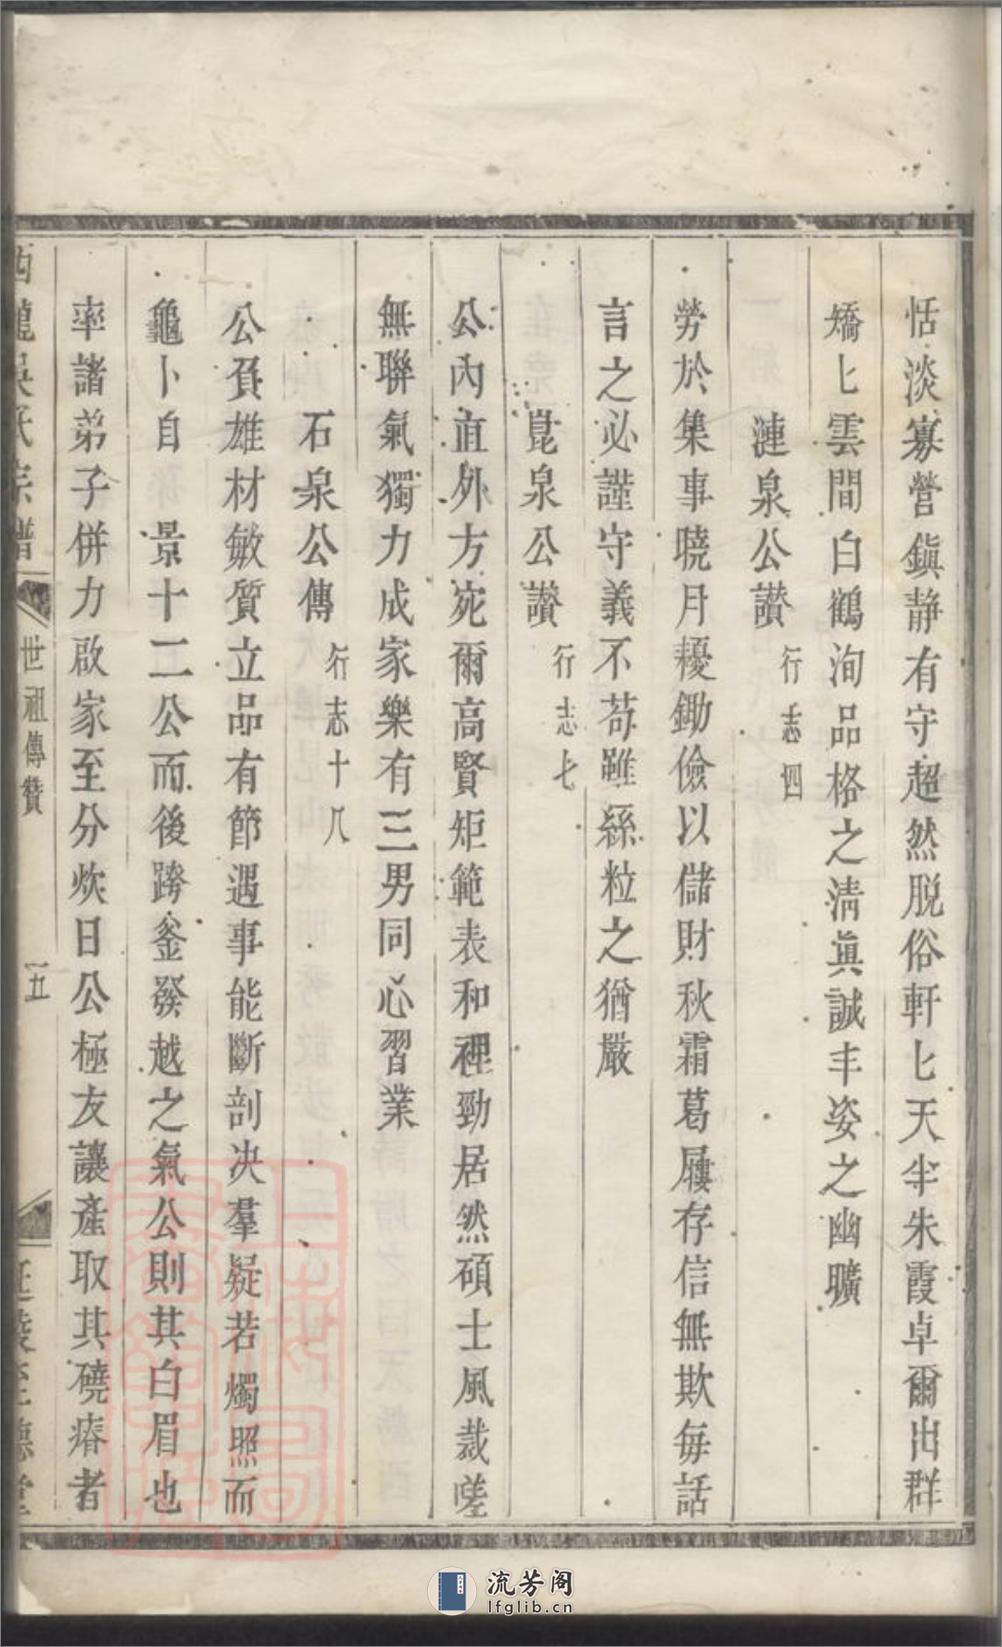 恬淡寡營鎭静有守超然脱俗軒匕天半朱霞卓爾出群
矯匕雲間白鶴洵品格之清眞誠丰姿之幽曠
漣泉公讃 行志四
勞於集事曉月耰鋤儉以儲財秋霜葛屨存信無欺毎話
言之必謹守義不苟雖絲粒之猶嚴
崑泉公讃 行志七
公内直外方宛爾高賢矩範表和裡勁居然碩士風裁嗟
無聯氣獨力成家樂有三男同心習業
石泉公傳 行志十八
公負雄材敏質立品有節遇事能斷剖决羣疑若燭照而
龜卜自 景十二公而後跨釜發越之氣公則其白眉也
率諸弟子併力啟家至分炊日公極友讓產取其磽瘠者
吳氏宗譜 世祖傳贊 五 至德堂
流芳阁
lfglib.cn